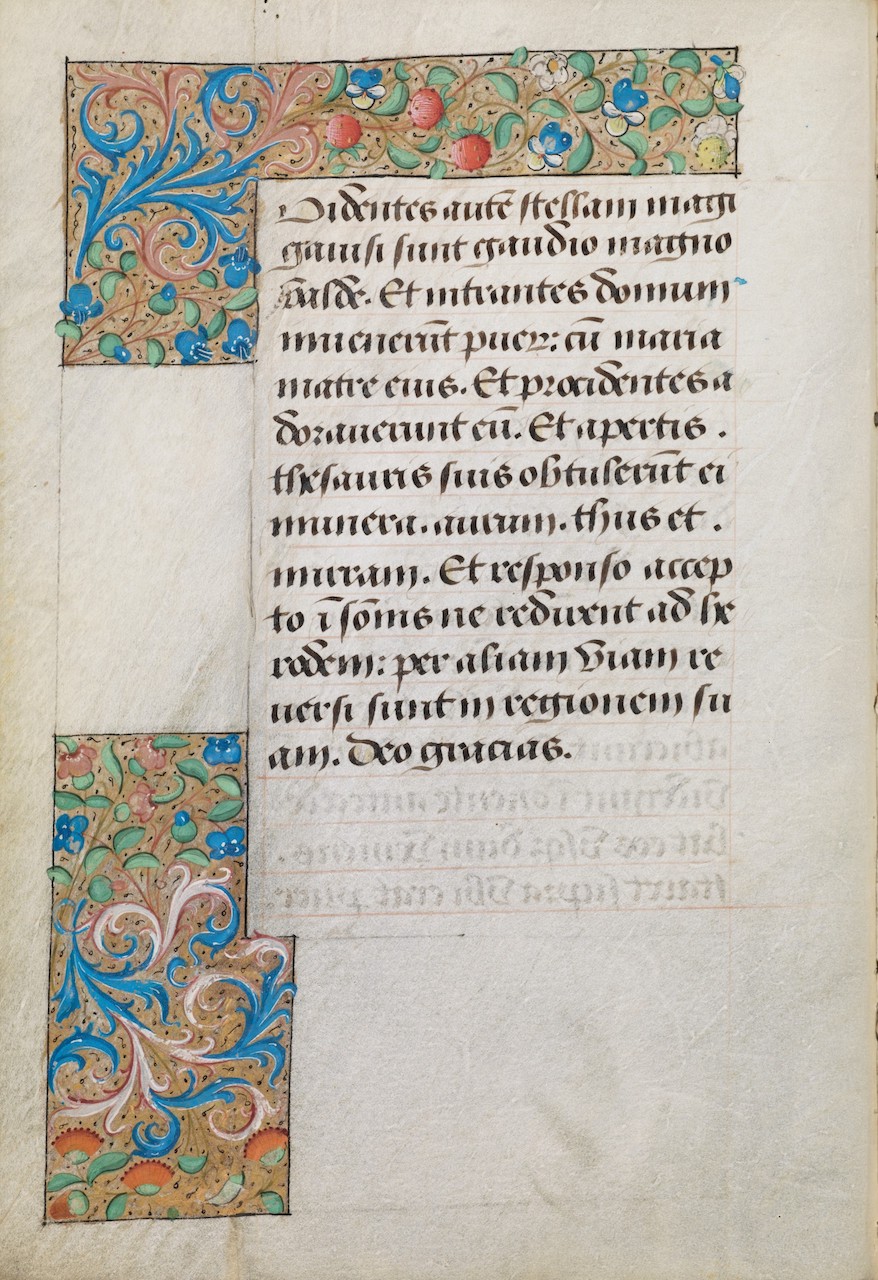 Uidentes autē stellam magi
gauisi sunt gaudio magno
valde. Et intrantes domum
inuenerūt puerꝝ: cū maria
matre eius. Et procidentes a
dorauerunt eū. Et apertis .
thesauris suis obtulerūt ei
munera. aurum. thus et .
mirram. Et responso accep
to ī sōmis ne redirent ad he
rodem: per aliam viam re
uersi sunt in regionem su
am. Deo gracias.